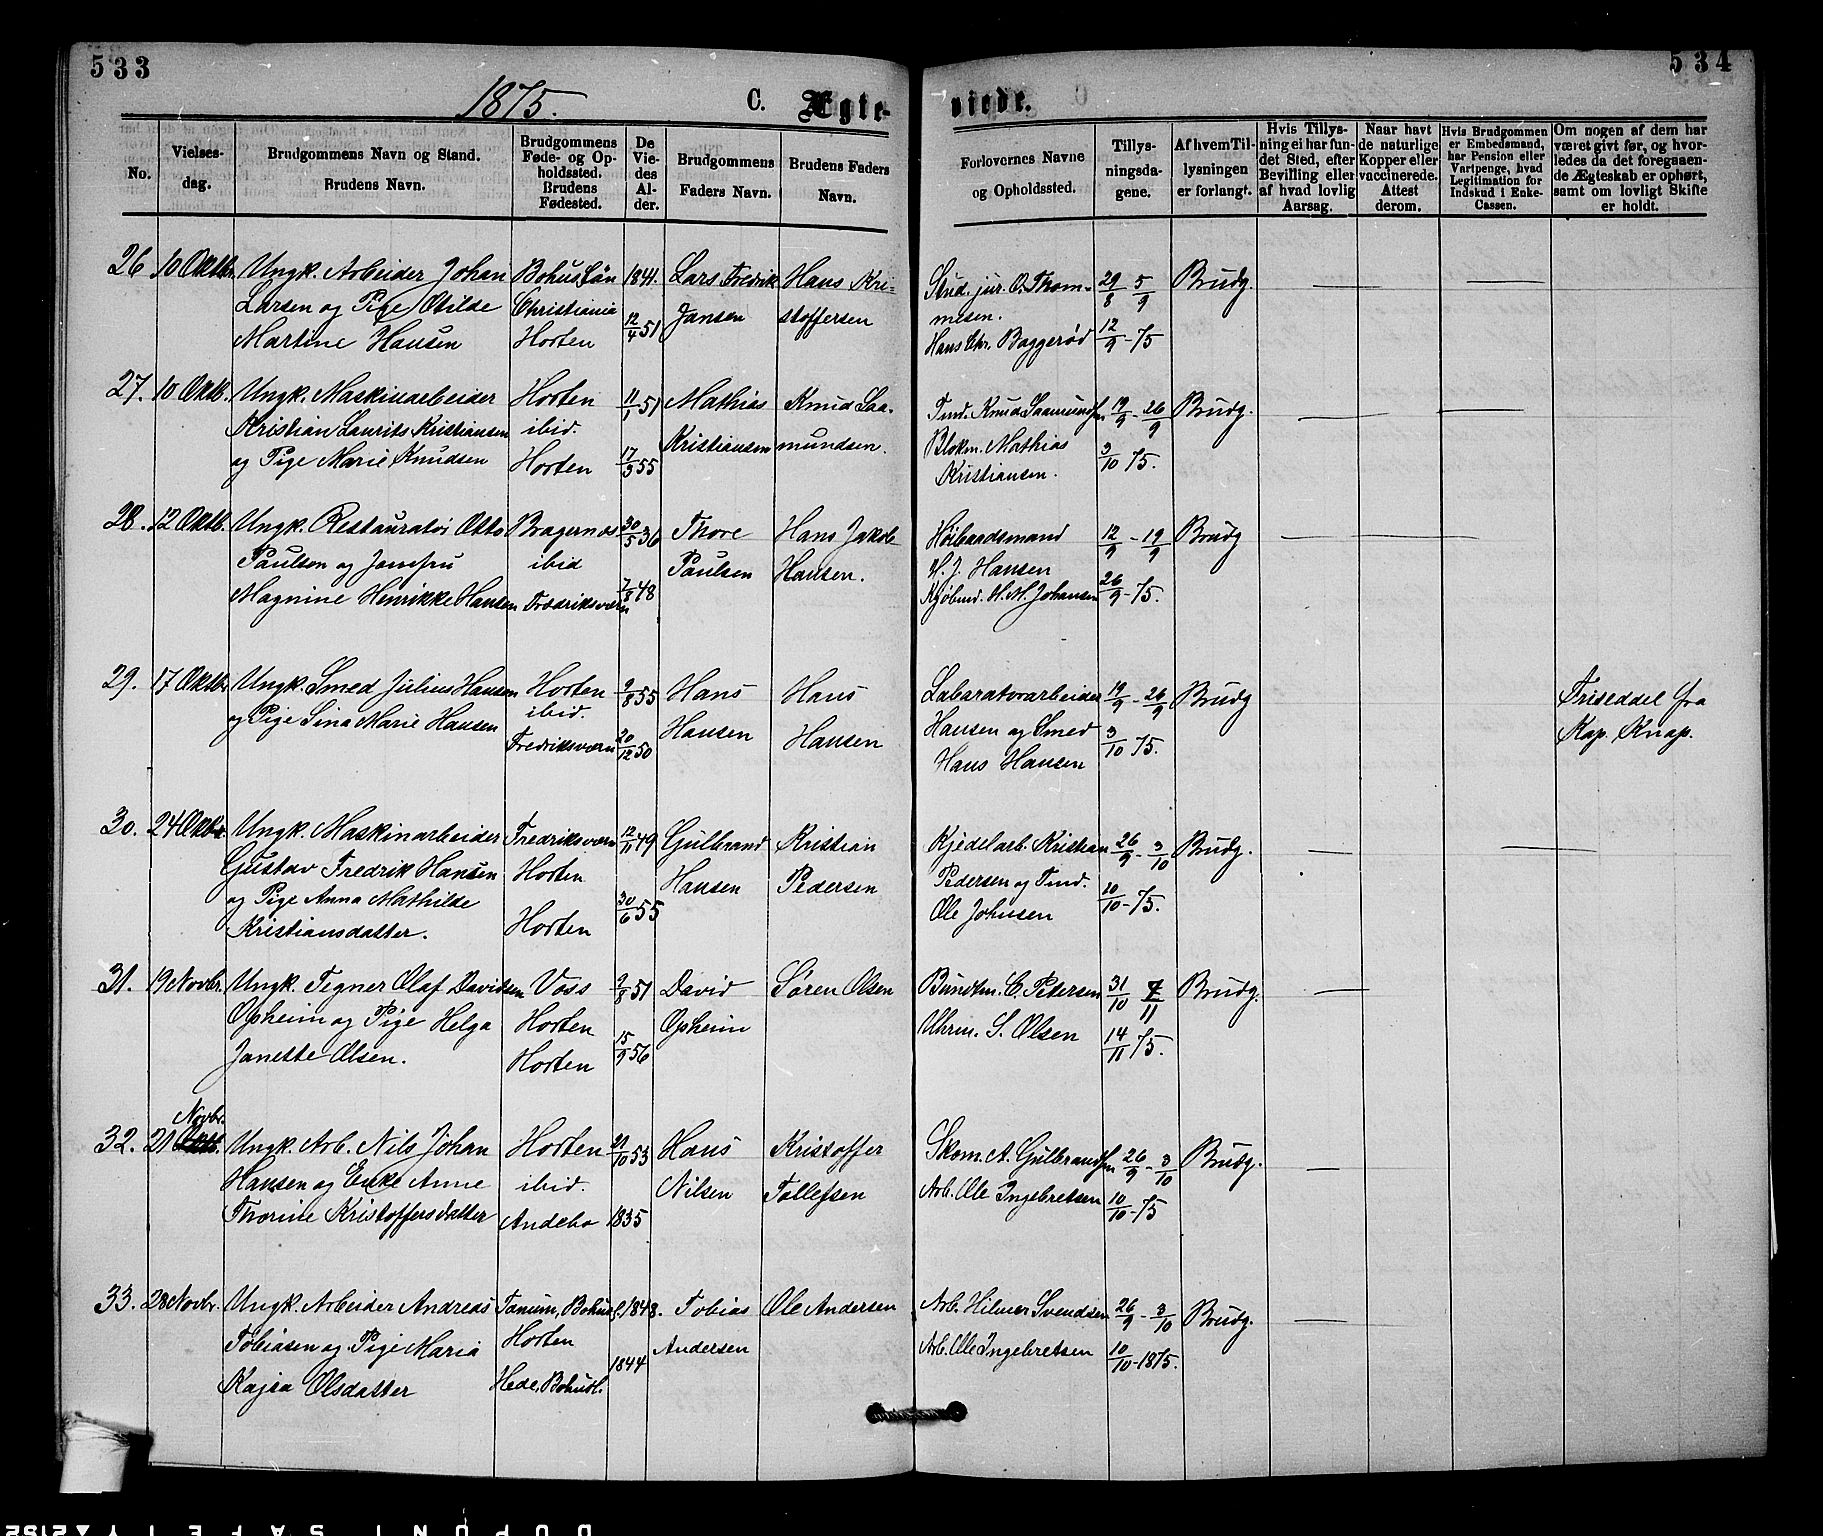 533
534
1875.
C. Ægte-
viede.
No.
Vielses-
dag.
Brudgommens Navn og Stand.
Brudens Navn.
Brudgommens
Føde- og Op-
holdssted.
Brudens
Fødested.
De
Vie-
des
Al-
der.
Brudgommens
Faders Navn.
Brudens Faders
Navn.
Forlovernes Navne
og Opholdssted.
Tillys-
ningsda-
gene.
Af hvem Til-
lysningen
er forlangt.
Hvis Tillys-
ning ei har fun-
det Sted, efter
Bevilling eller
af hvad lovlig
Aarsag.
Naar havt
de naturlige
Kopper eller
vaccinerede.
Attest
derom.
Hvis Brudgommen
er Embedsmand,
har Pension eller
Vartpenge, hvad
Legitimation for
Indskud i Enke-
Cassen.
Om nogen af dem har
været givt før, og hvor-
ledes da det foregaaen-
de Ægteskab er ophørt,
samt om lovligt Skifte
er holdt.
26 10 Oktbr. Ungk. Arbeider Johan Bohuslän 1841. Lars Fredrik Hans Kri- Stud. jur. O. Thom- 29/8 5/9 Brudg. — —
Larsen og Pige Otilde Christiania Jansen stoffersen mesen.
Martine Hansen Horten 12/4 51 Hans Chr. Baggerød 12/9 - 75
27. 10 Oktb. Ungk. Maskinarbeider Horten 11/1 51 Mathias Knud Saa- Tmd. Knud Saamundsen 19/9 - 26/9 Brudg. — —
Kristian Laurits Kristiansen ibid. Kristiansen mundsen. Blokm. Mathias
og Pige Marie Knudsen Horten 17/3 55 Kristiansen. 3/10 75.
28. 12 Oktb. Ungk. Restauratør Otto Bragernes 30/5 36 Thore Hans Jakob Høibaadsmand 12/9 - 19/9 Brudg — —
Paulsen og Jomfru ibid Paulsen Hansen. H. J. Hansen
Magnine Henrikke Hansen Fredriksværn 7/8 48 Kjøbmd. H. M. Johansen 26/9 - 75.
29. 17 Oktbr Ungk. Smed Julius Hansen Horten 9/8 55 Hans Hans Labaratorarbeider 19/9 - 26/9 Brudg Friseddel fra
og Pige Lina Marie Hansen ibid. Hansen Hansen Hansen og Smed Kap. Knap.
Fredriksværn 20/12 50 Hans Hansen 3/10 75.
30. 24 Oktbr. Ungk. Maskinarbeider Fredriksværn 12/11 49 Gulbrand Kristian Kjedelarb. Kristian 26/9 - 3/10 Brudg. — —
Gustav Fredrik Hansen Horten Hansen Pedersen Pedersen og Tmd.
og Pige Anna Mathilde 30/6 55 Ole Johnsen 10/10 - 75.
Kristiansdatter. Horten
31. 19 Novbr. Ungk. Tegner Olaf Davidsen Voss 9/8 51 David Søren Olsen Bundtm. C. Petersen 31/10 7/11 Brudg. —
Opheim og Pige Helga Horten Opheim Uhrm. S. Olsen
Janette Olsen. Horten 15/9 56 14/11 75.
Novbr.
32. 21 Oktb. Ungk. Arb. Nils Johan Horten 21/10 53 Hans Kristoffer Skom. A. Gulbrandsen 26/9 - 3/10 Brudg. —
Hansen og Enke Anne ibid. Nilsen Tollefsen Arb. Ole Ingebretsen
Thorine Kristoffersdatter Andebo 1835 10/10 - 75
33. 28 Novbr. Ungk. Arbeider Andreas Tanum, Bohusl. 1848. Tobias Ole Andersen Arb. Hilmer Svendsen 26/9 - 3/10 Brudg. —
Tobiasen og Pige Maria Horten Andersen Arb. Ole Ingebretsen
Kajsa Olsdatter Hede, Bohusl. 1844 10/10 - 1875.